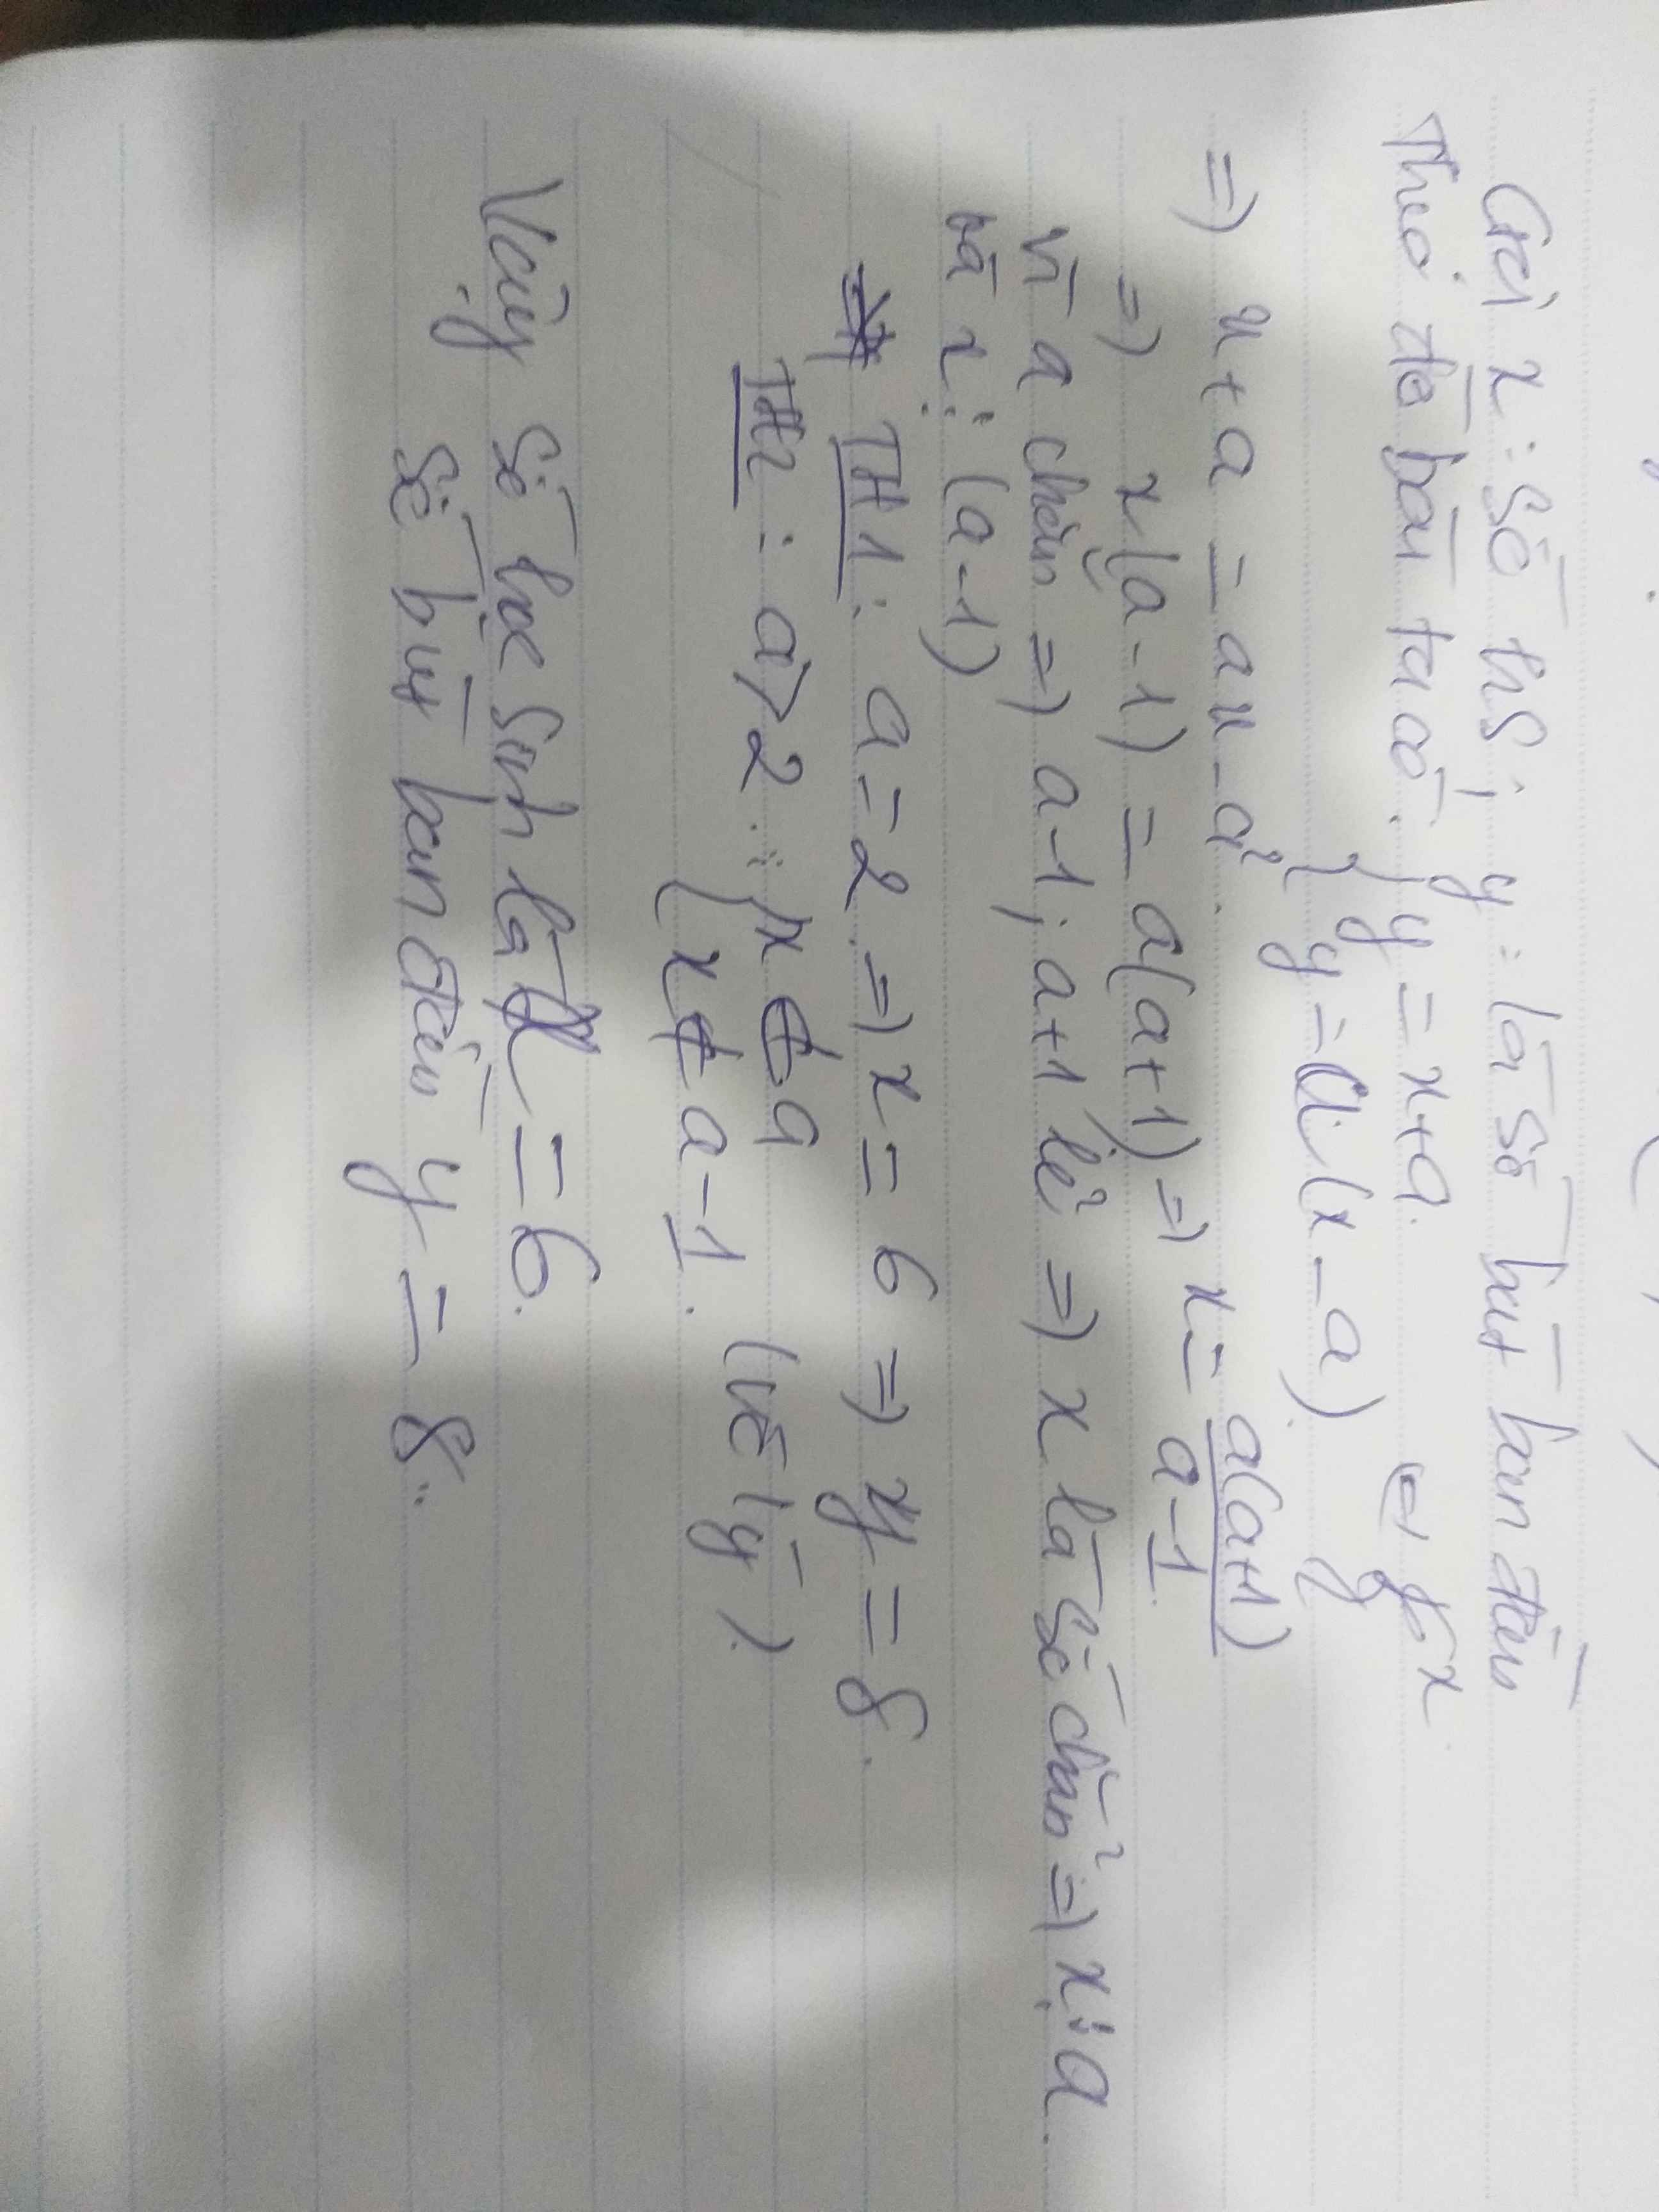 Gọi x: số hs; y: là số bút ban đầu
Theo đề bài ta có: { y = x+a.
{ y = a.(x - a)
=) x + a = ax - a².
=) x(a-1) = a(a+1) =) x = a(a+1) / a-1.
Vì a chẵn =) a-1; a+1 lẻ =) x là số chẵn =) x ⋮ a.
và x ⋮ (a-1)
TH1: a = 2. =) x = 6 =) y = 8.
TH2: a > 2 : { x ⋮ a
{ x ⋮ a-1. (vô lý).
Vậy số học sinh là x = 6.
Số bút ban đầu y = 8.